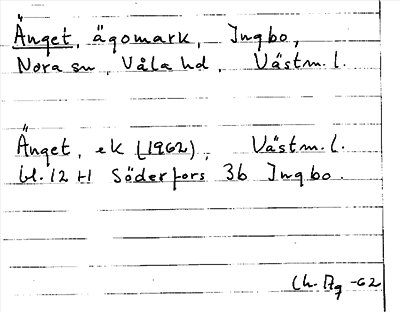 Änget, ägomark, Ingbo,
Nora sn, Våla hd, Västm. l.
Änget, ek (1962), Västm. l.
bl. 12 H Söderfors 3b Ingbo.
-62